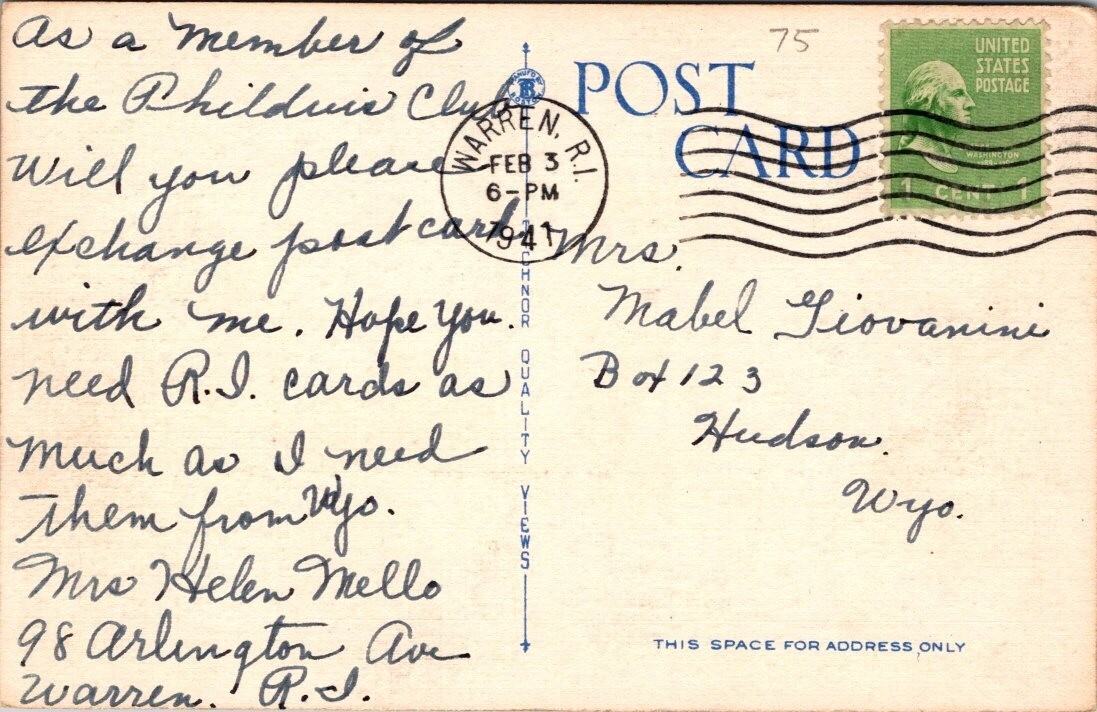 As a member of
the Phildvis Club
Will you please
exchange postcard
with me. Hope you
need R.I. cards as
much as I need
them from Wyo.
Mrs Helen Mello
98 Arlington Ave
Warren. R.I.
75
POST
CARD
UNITED
STATES
POSTAGE
WASHINGTON
1 CENT 1
WARREN, R.I.
FEB 3
6-PM
1941
Mrs.
Mabel Giovanini
Box 123
Hudson.
Wyo.
TICHNOR QUALITY VIEWS
THIS SPACE FOR ADDRESS ONLY